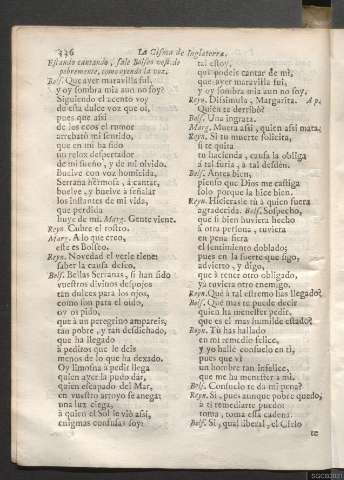 446
La Cisma de Inglaterra.
Estando cantando, sale Bolseo vestido
pobremente, como oyendo la voz.
Bols. Que ayer maravilla fuí,
y oy sombra mia aun no soy?
Siguiendo el acento voy
de esta dulce voz que oì,
pues que assi
de los ecos el rumor
arrebatò mi sentido,
que en mi ha sido
un relox despertador
de mi sueño, y de mi olvido.
Buelve con voz homicida,
Serrana hermosa, à cantar,
buelve, y buelve à señalar
los instantes de mi vida,
que perdida
huye de mi. Marg. Gente viene.
Reyn. Cubre el rostro.
Marg. A lo que creo,
este es Bolseo.
Reyn. Novedad el verle tiene:
saber la causa deseo.
Bols. Bellas Serranas, si han sido
vuestros divinos despojos
tan dulces para los ojos,
como son para el oido,
oy os pido,
que à un peregrino ampareis,
tan pobre, y tan desdichado,
que ha llegado
à pediros que le deis
menos de lo que ha dexado.
Oy limosna à pedir llega
quien ayer la pudo dàr,
quien escapado del Mar,
en vuestro arroyo se anega:
una luz ciega,
à quien el Sol le viò assi,
enigmas confusas soy:
tal estoy,
que podeis cantar de mi,
que ayer maravilla fui,
y oy sombra mia aun no soy.
Reyn. Dissimula, Margarita. Ap.
Quièn te derribò?
Bols. Una ingrata.
Marg. Muera assi, quien assi mata.
Reyn. Si tu muerte solicita,
si te quita
tu hacienda, causa la obliga
à tal furia, à tal desdèn.
Bols. Antes bien,
pienso que Dios me castiga
solo porque la hice bien.
Reyn. Hicierasle tù à quien fuera
agradecida. Bols. Sospecho,
que si bien huviera hecho
à otra persona, tuviera
en pena fiera
el sentimiento doblado;
pues en la suerte que sigo,
advierto, y digo,
que à tener otro obligado,
yà tuviera otro enemigo.
Reyn. Què à tal estremo has llegado?
Bols. Què mas te puede decir
quien ha menester pedir,
que es el mas humilde estado?
Reyn. Tù has hallado
en mi remedio felice,
y yo hallè consuelo en tì,
pues que vì
un hombre tan infelice,
que me ha menester à mì.
Bols. Consuelo te da mi pena?
Reyn. Si, pues aunque pobre quedo,
à tì remediarte puedo:
toma, toma esta cadena.
Bols. Si, qual liberal, el Cielo
te